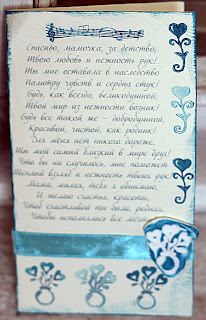 Спасибо, мамочка, за детство,
Твою любовь и нежность рук!
Ты мне оставила в наследство
Палитру чувств и сердца стук!
Будь, как всегда, великодушной,
Твой мир из нежности возник!
Будь все такой же - добродушной,
Красивой, чистой, как родник!
Для меня нет никого дороже,
Ты мой самый близкий в мире друг!
Что бы ни случилось, мне поможет
Теплый взгляд и нежность твоих рук!
Мама, милая, тебя я обнимаю,
И желаю счастья, красоты,
счастливой ты была, родная,
Чтобы исполнялись все